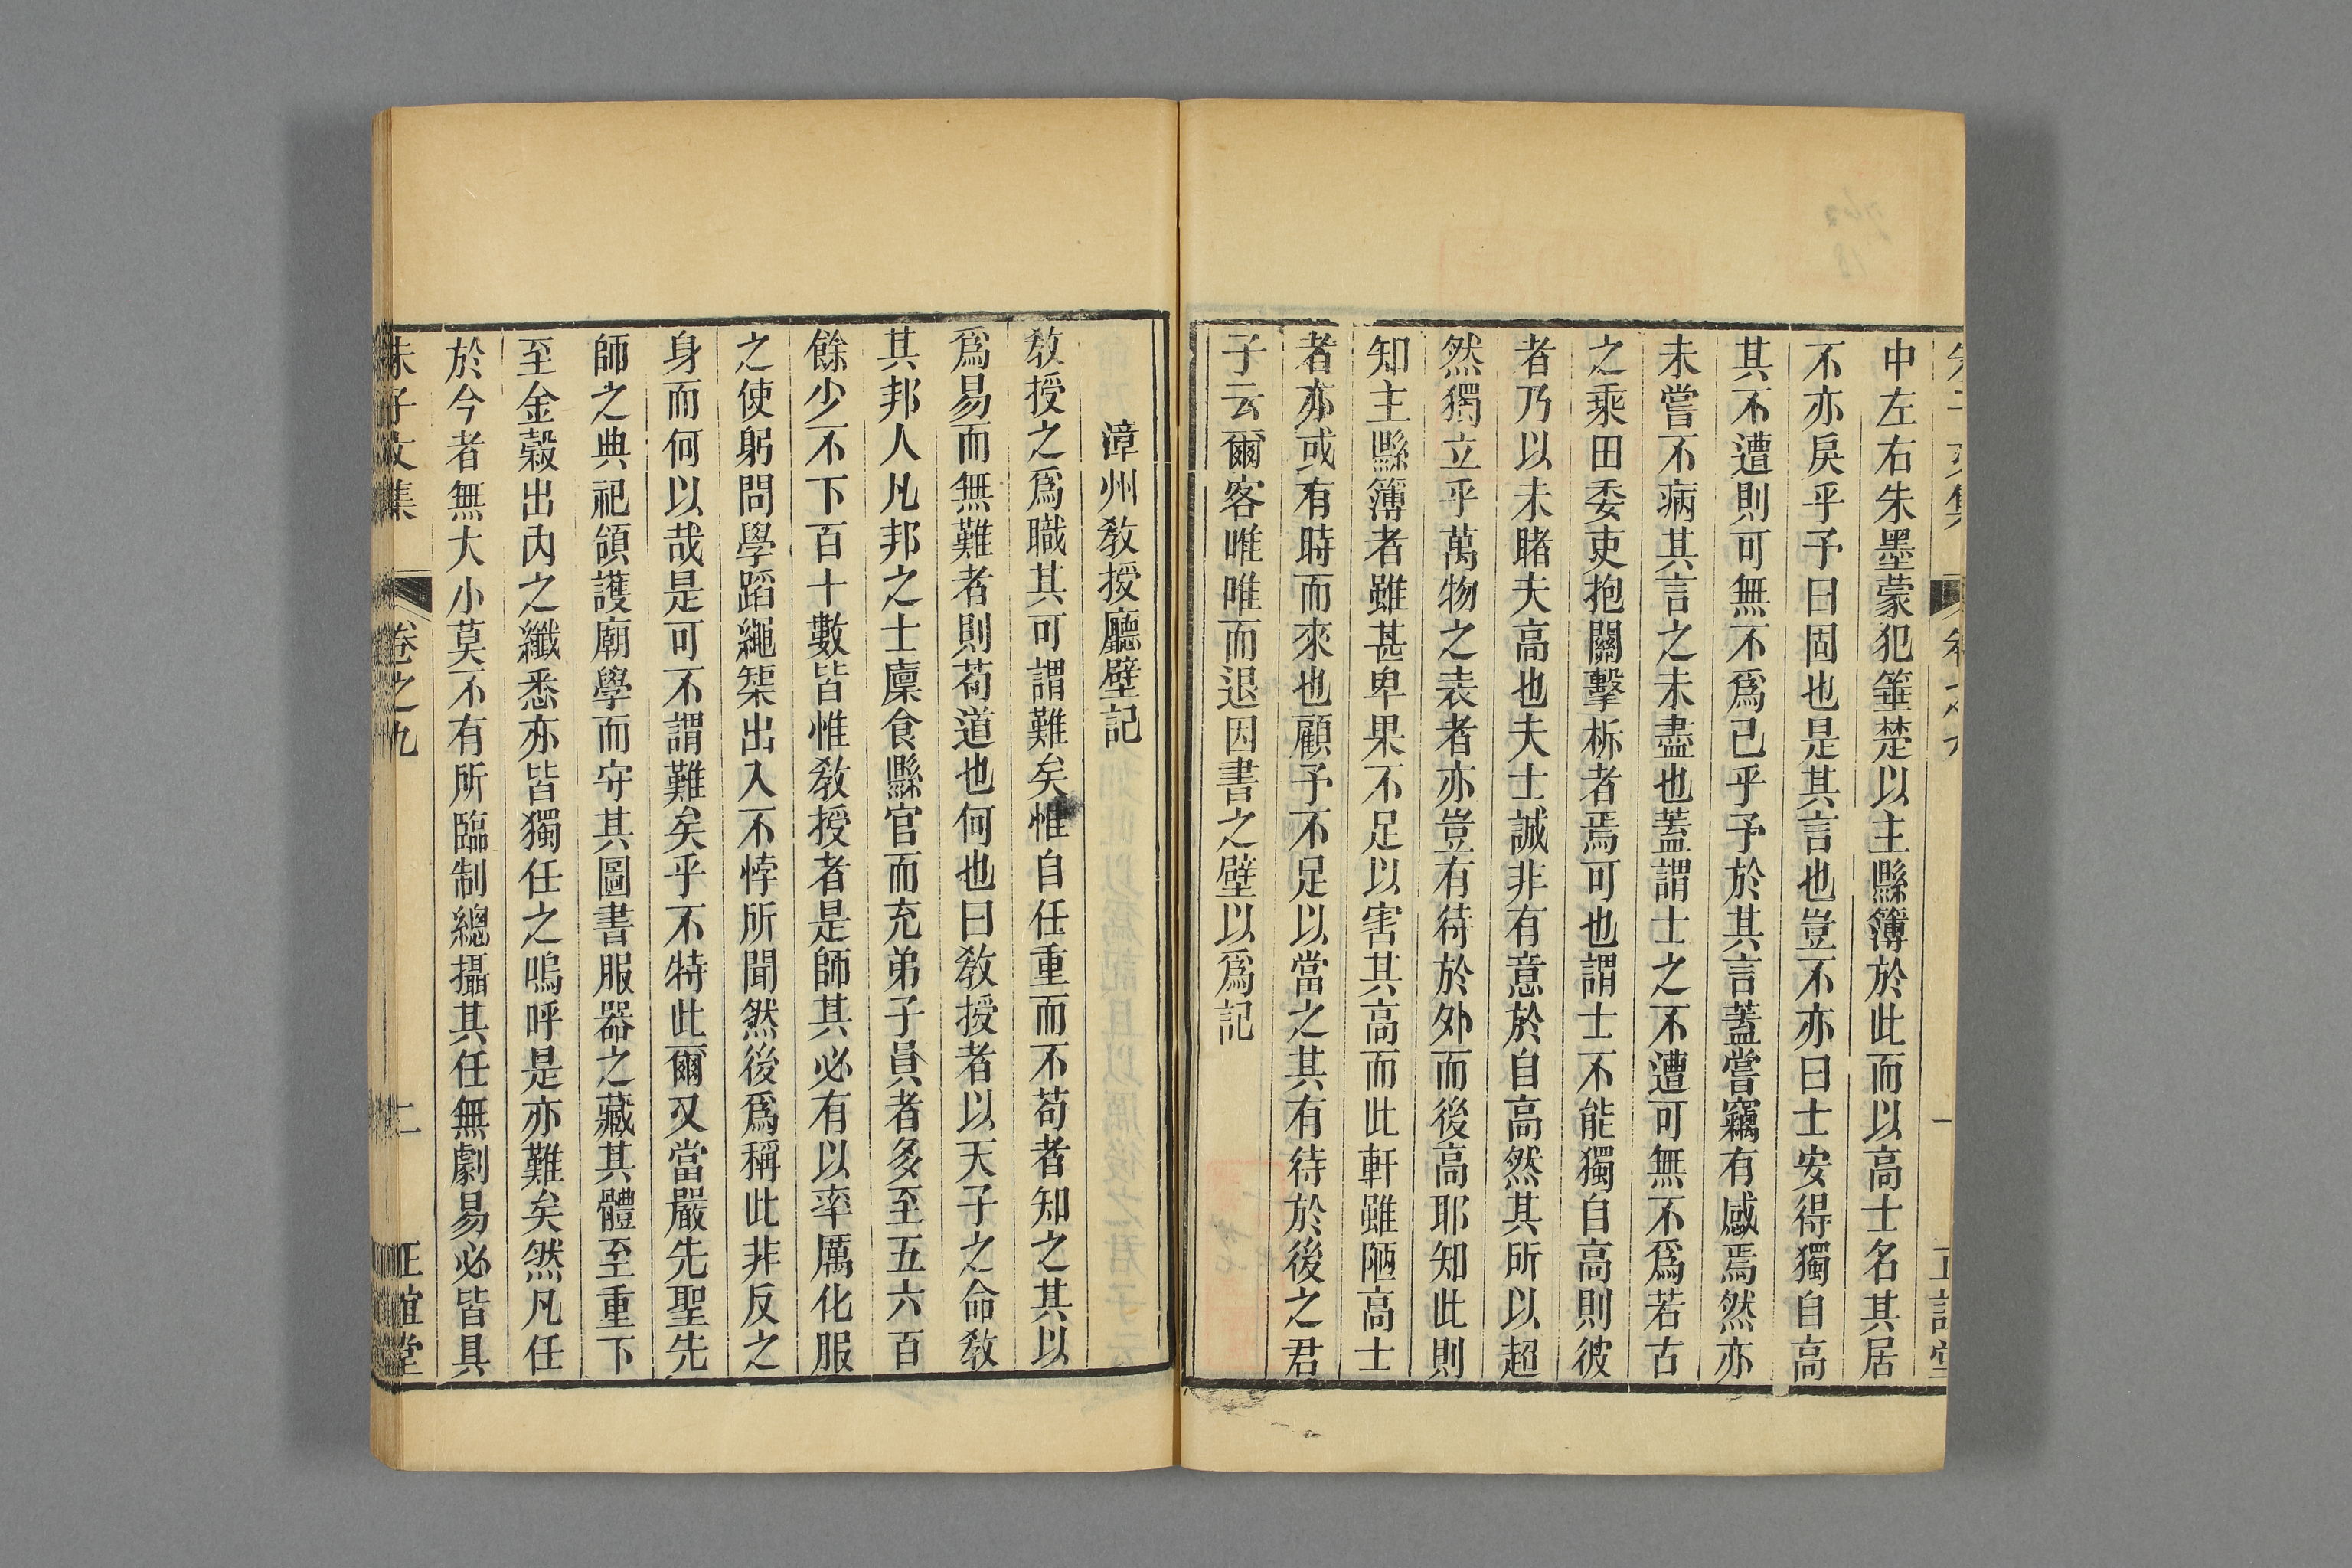 中左右朱墨蒙犯箠楚以主縣簿於此而以高士名其居
不亦戾乎予曰固也是其言也豈不亦曰士安得獨自高
其不遭則可無不爲已乎予於其言蓋嘗竊有感焉然亦
未嘗不病其言之未盡也蓋謂士之不遭可無不爲若古
之乘田委吏抱關擊柝者焉可也謂士不能獨自高則彼
者乃以未睹夫高也夫士誠非有意於自高然其所以超
然獨立乎萬物之表者亦豈有待於外而後高耶知此則
知主縣簿者雖甚卑果不足以害其高而此軒雖陋高士
者亦或有時而來也顧予不足以當之其有待於後之君
子云爾客唯唯而退因書之壁以爲記
漳州敎授廳壁記
敎授之爲職其可謂難矣惟自任重而不苟者知之其以
爲易而無難者則苟道也何也曰敎授者以天子之命敎
其邦人凡邦之士廩食縣官而充弟子員者多至五六百
餘少不下百十數皆惟敎授者是師其必有以率厲化服
之使躬問學蹈繩榘出入不悖所聞然後爲稱此非反之
身而何以哉是可不謂難矣乎不特此爾又當嚴先聖先
師之典祀領護廟學而守其圖書服器之藏其體至重下
至金穀出內之纖悉亦皆獨任之嗚呼是亦難矣然凡任
於今者無大小莫不有所臨制總攝其任無劇易必皆具
朱子文集 卷之九 二 正誼堂